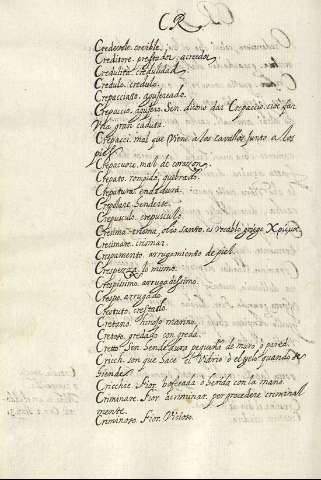 CR.
Credevole, creible.
Creditore, prestador, acreedor
Credulità, credulidad
Credulo, credulo.
Crepacciato, agujereado.
Crepaccio, agujero. Sen. dicono dar Crepaccio, cioè far
Una gran caduta.
Crepacci, mal que viene a los cavallos junto a los
pies
Crepacuore, mal de corazon,
Crepato, rompido, quebrado
Crepatura, endedura.
Crepolare, henderse.
Crepusculo, crepusculo.
Cresima, crisma, olio santo, es vocablo griego
Cresimare, crismar.
Crespamento, arrugamiento de piel.
Crespezza, lo mismo.
Crespissimo, arrugadissimo.
Crespo, arrugado
Crestuto, crestado.
Cretano, hinojo marino,
Cretoso, gredago con greda.
Cretto, Sen. hendedura pequeña de muro, o pared.
Cricch, son que hace el vidrio o el yelo quando se
hiende
Cricchie, Fior. bofetada o herida con la mano.
Criminare, Fior. acriminar, per procedere criminal
mente.
Criminoso, Fior. Vicioso.